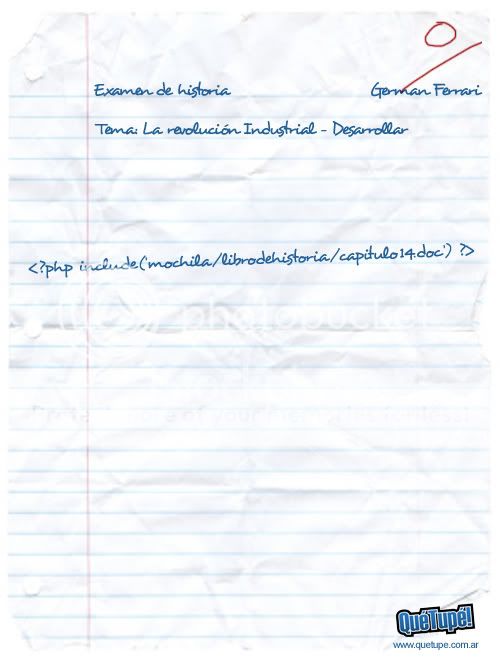 Examen de historia German Ferrari
Tema: La revolución Industrial - Desarrollar
<?php include('mochila/librodehistoria/capitulo14.doc') ?>
photobucket
Protect more of your memories for less!
QuéTupé!
www.quetupe.com.ar